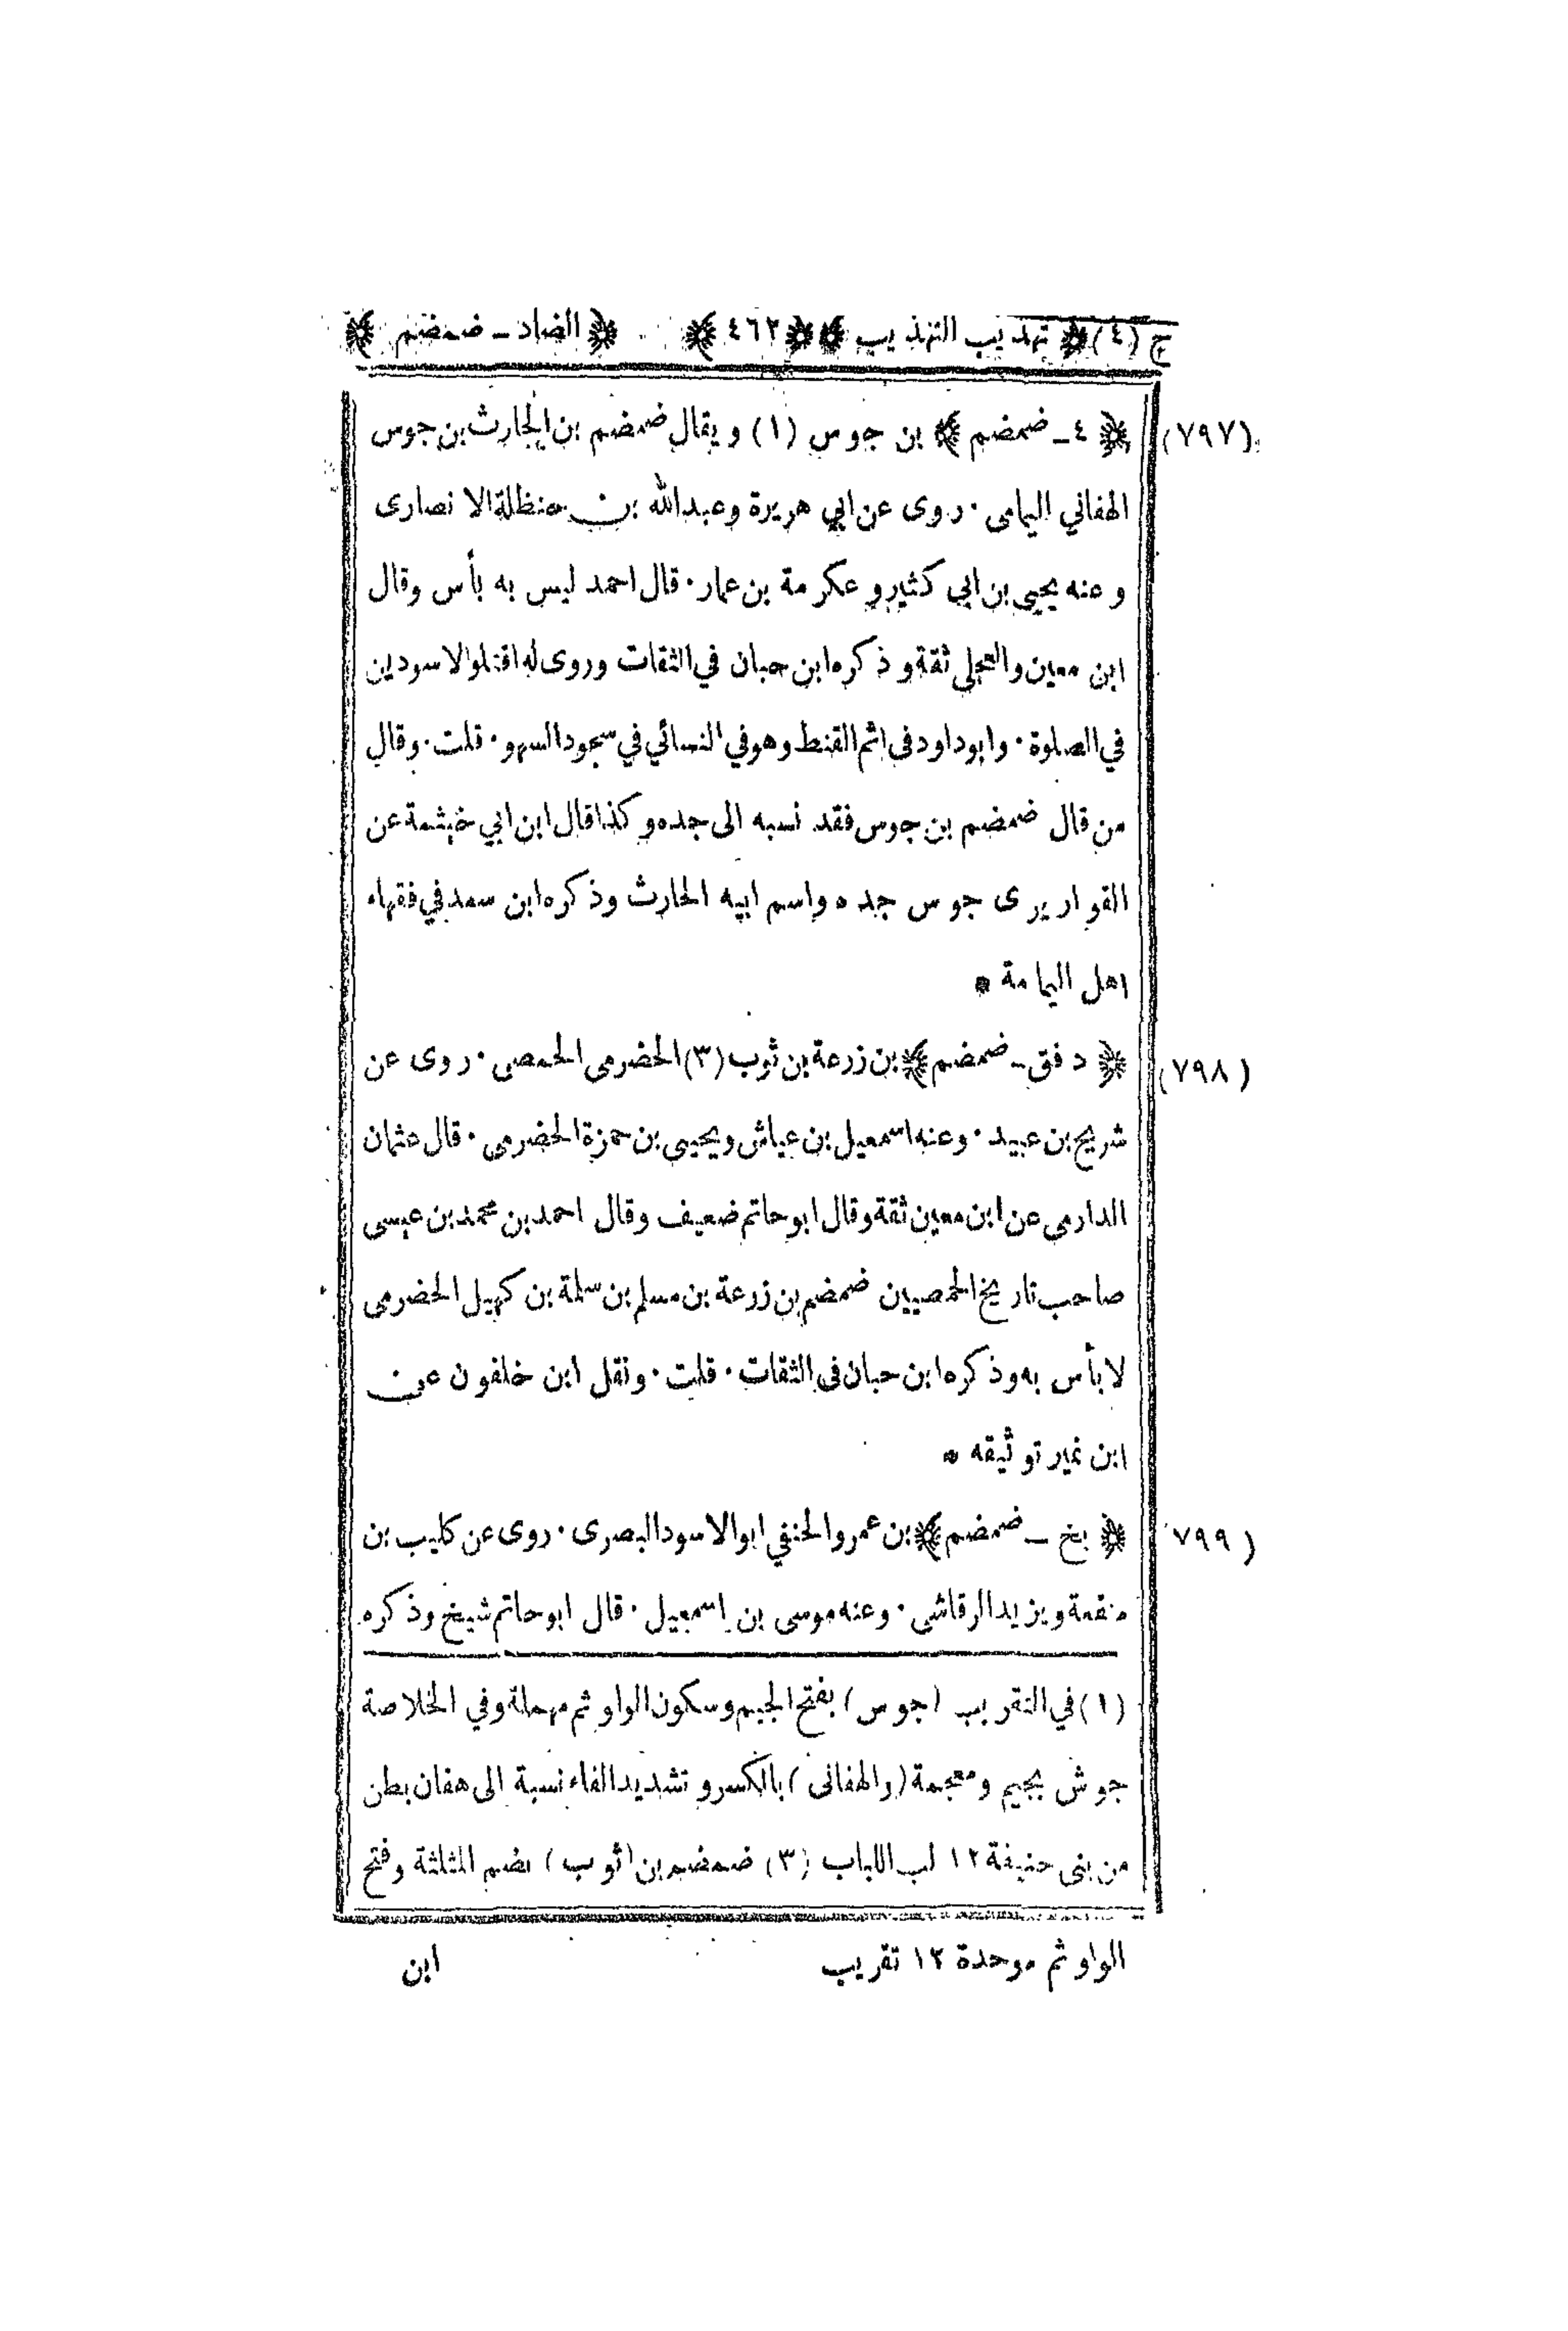 ج (٤) ﴿ تهذيب التهذيب ﴾ ﴿ ٤٦٢ ﴾ ﴿ الضاد - ضمضم ﴾
(٧٩٧) ﴿ ٤ - ضمضم ﴾ بن جوس (١) ويقال ضمضم بن الحارث بن جوس
الهفاني اليمامى ٠ روى عن ابي هريرة وعبدالله بن حنظلة الانصارى
وعنه يحيى بن ابي كثير وعكرمة بن عمار ٠ قال احمد ليس به بأس وقال
ابن معين والعجلي ثقة وذكره ابن حبان في الثقات وروى له اقتلوا الاسودين
في الصلوة ٠ وابوداود فى اثم القنط وهو في النسائي في سجود السهو ٠ قلت ٠ وقال
من قال ضمضم بن جوس فقد نسبه الى جده وكذا قال ابن ابي خيثمة عن
القواريرى جوس جده واسم ابيه الحارث وذكره ابن سعد في فقهاء
اهل اليمامة *
(٧٩٨) ﴿ د فق - ضمضم ﴾ بن زرعة بن ثوب (٣) الحضرمى الحمصى ٠ روى عن
شريح بن عبيد ٠ وعنه اسمعيل بن عياش ويحيى بن حمزة الحضرمى ٠ قال عثمان
الدارمى عن ابن معين ثقة وقال ابوحاتم ضعيف وقال احمد بن محمد بن عيسى
صاحب تاريخ الحمصيين ضمضم بن زرعة بن مسلم بن سلمة بن كهيل الحضرمى
لا بأس به وذكره ابن حبان فى الثقات ٠ قلت ٠ ونقل ابن خلفون عن
ابن نمير توثيقه *
(٧٩٩ ﴿ بخ - ضمضم ﴾ بن عمرو الحنفي ابوالاسود البصرى ٠ روى عن كليب بن
منفعة ويزيد الرقاشى ٠ وعنه موسى بن اسمعيل ٠ قال ابوحاتم شيخ وذكره
(١) في التقريب (جوس) بفتح الجيم وسكون الواو ثم مهملة وفي الخلاصة
جوش بجيم ومعجمة (والهفانى) بالكسر وتشديد الفاء نسبة الى هفان بطن
من بنى حنيفة ١٢ لب اللباب (٣) ضمضم بن (ثوب) بضم المثلثة وفتح
الواو ثم موحدة ١٢ تقريب ابن